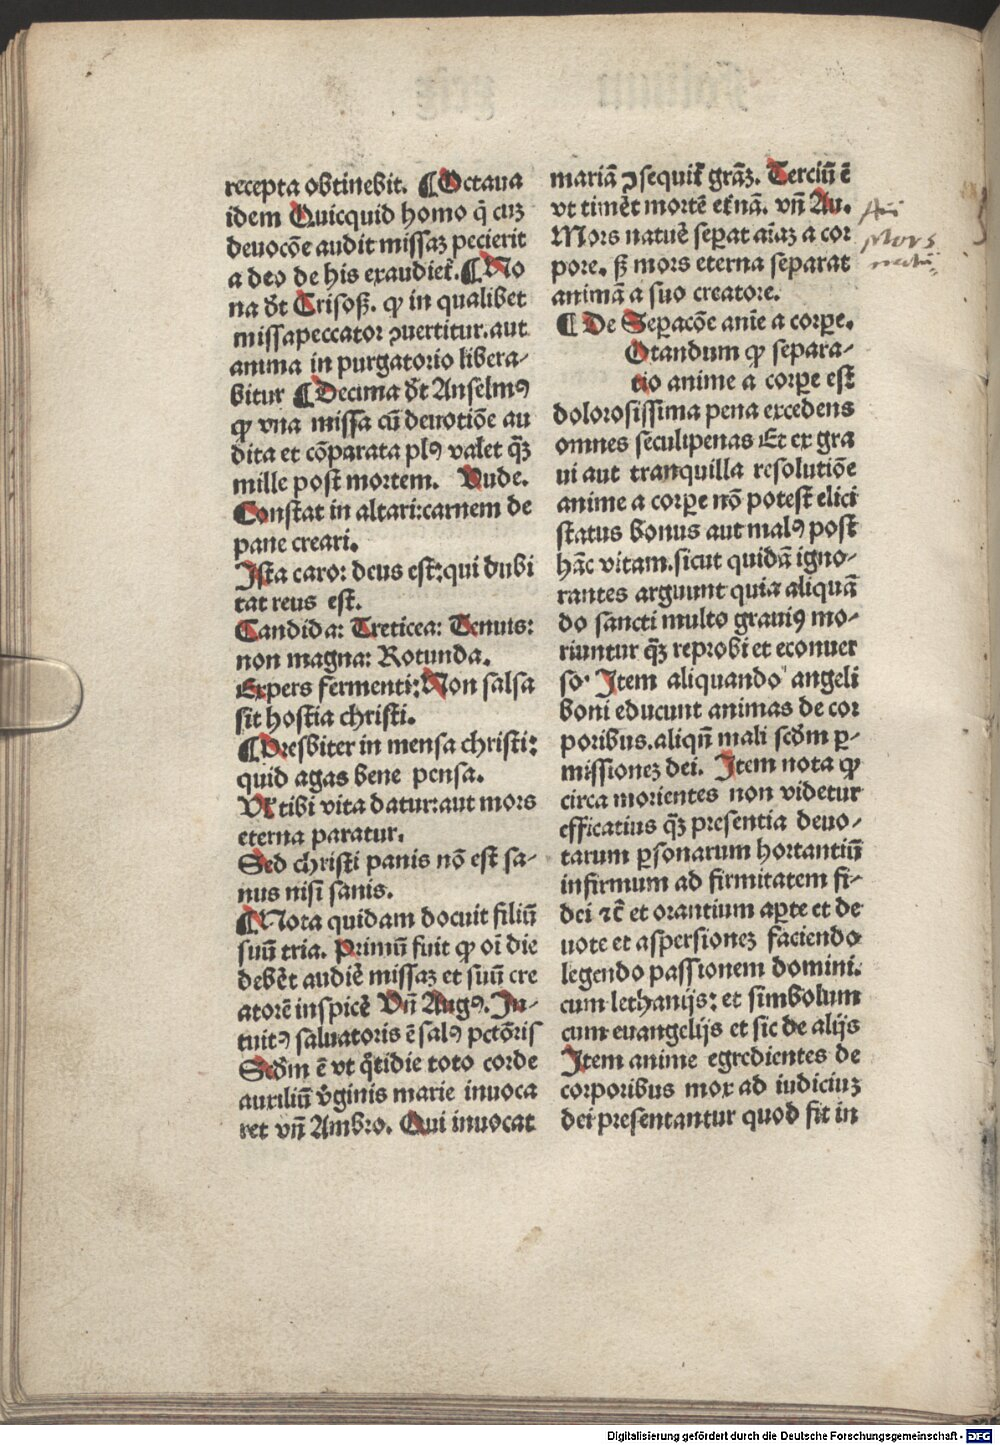 recepta obtinebit. ¶ Octaua
idem Quicquid homo q̄ cuꝫ
deuocōe audit missaꝫ pecierit
a deo de his exaudiet̃. ¶ No
na dt̃ Crisoß. ꝙ in qualibet
missapeccator ꝯuertitur.aut
anima in purgatorio libera-
bitur ¶ Decima dt̃ Anselmꝰ
ꝙ vna missa cū deuotiōe au
dita et cōparata plꝰ valet q̄ꝫ
mille post mortem. Vnde.
Constat in altari:carnem de
pane creari.
Ista caro: deus est:qui dubi
tat reus est.
Candida: Treticea: Tenuis:
non magna: Rotunda.
Expers fermenti: Non salsa
sit hostia christi.
¶ Presbiter in mensa christi:
quid agas bene pensa.
Ut tibi vita datur:aut mors
eterna paratur.
Sed christi panis nō est sa-
nus nisi sanis.
¶ Nota quidam docuit filiū
suū tria. Primū fuit ꝙ oī die
debēt audiē missaꝫ et suū cre
atorē inspicē Vñ Augꝰ. In-
tuitꝰ saluatoris ē salꝰ pctōris
Scdm ē vt q̄tidie toto corde
auxiliū v̄ginis marie inuoca
ret vñ Ambro. Qui inuocat
mariā ꝯsequit̃ grāꝫ. Terciū ē
vt timēt mortē et̃nā. vñ Au.
Mors natuē sepat aīaꝫ a cor
pore. ß mors eterna separat
animā a suo creatore.
¶ De Sepacōe anīe a corpe.
Otandum ꝙ separa-
tio anime a corpe est
dolorosissima pena excedens
omnes seculipenas Et ex gra
ui aut tranquilla resolutiōe
anime a corpe nō potest elici
status bonus aut malꝰ post
hāc vitam.sicut quidā igno-
rantes arguunt quia aliquā
do sancti multo grauiꝰ mo-
riuntur q̄ꝫ reprobi et econuer
so. Item aliquando angeli
boni educunt animas de cor
poribus.aliqñ mali scdm p-
missionez dei. Item nota ꝙ
circa morientes non videtur
efficatius q̄ꝫ presentia deuo-
tarum psonarum hortantiū
infirmum ad firmitatem fi-
dei ⁊c̄ et orantium apte et de
uote et aspersionez faciendo
legendo passionem domini.
cum lethanijs: et simbolum
cum euangelijs et sic de alijs
Item anime egredientes de
corporibus mox ad iudiciuꝫ
dei presentantur quod fit in
Mors
Digitalisierung gefördert durch die Deutsche Forschungsgemeinschaft - DFG